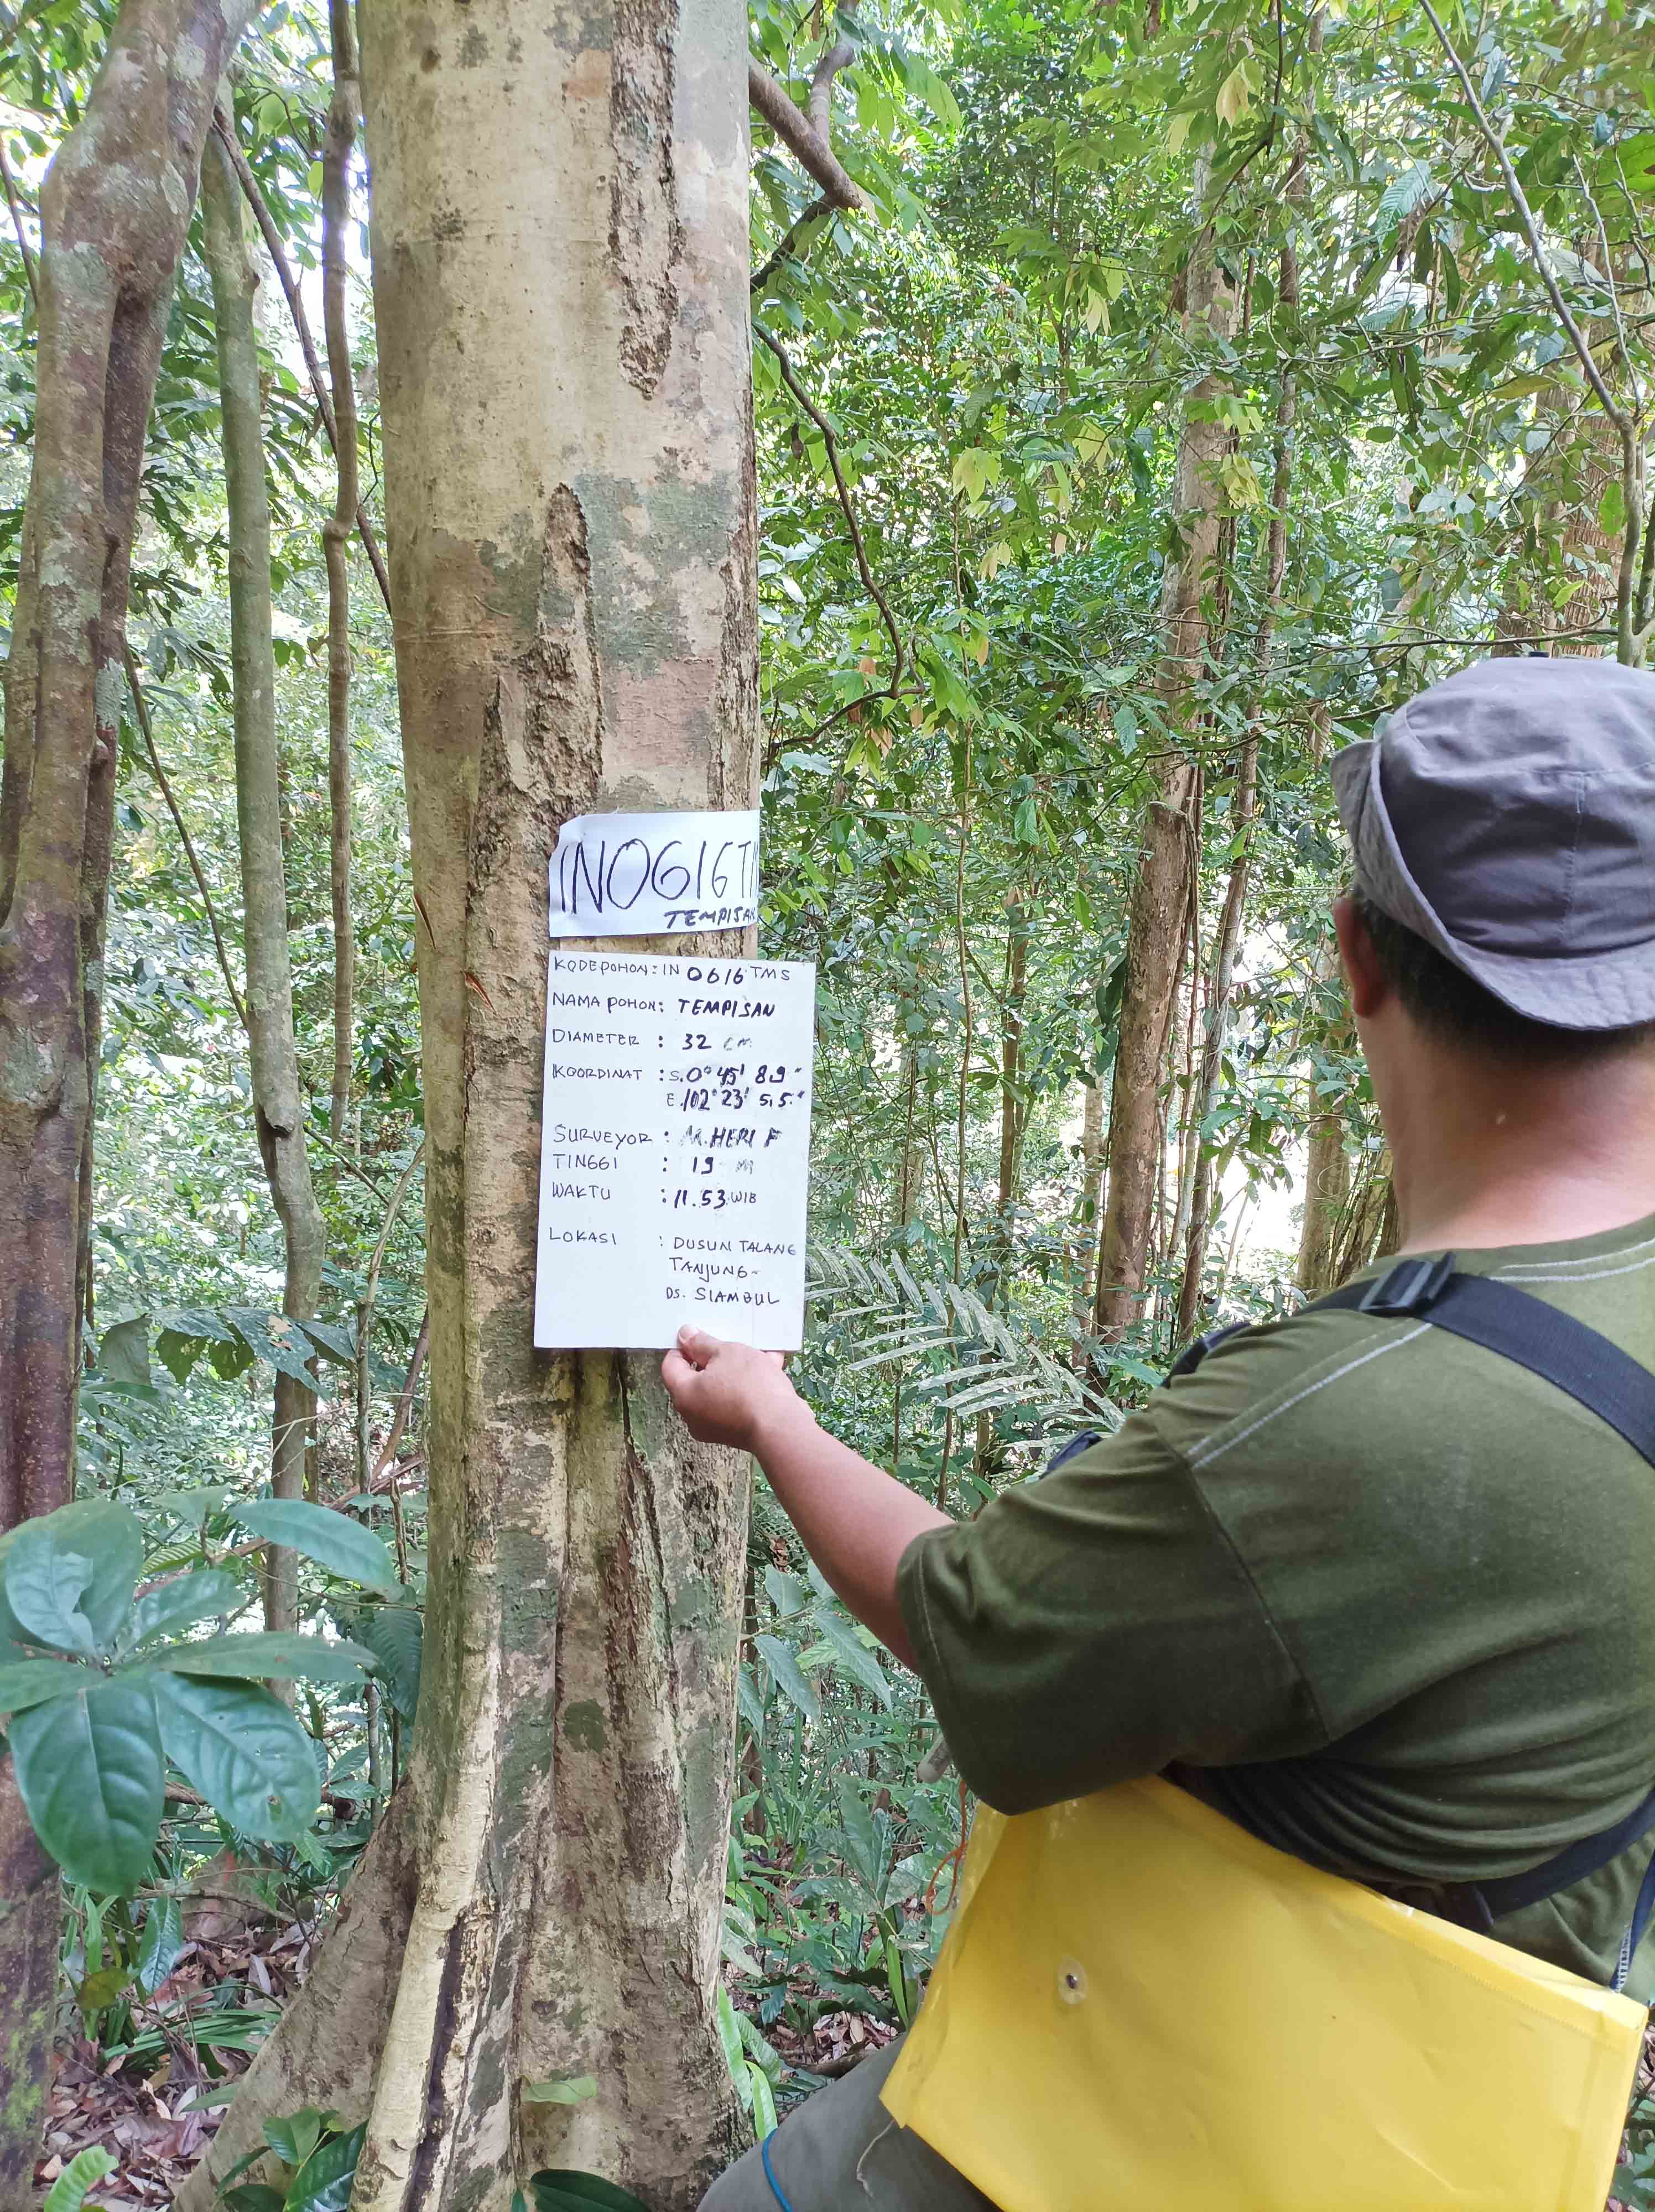 INO616T
TEMPISAN
KODEPOHON: IN 0616 TMS
NAMA POHON: TEMPISAN
DIAMETER : 32 cm
KOORDINAT : S. 0° 45' 8.9"
E. 102° 23' 5,5."
SURVEYOR : M. HERI F
TINGGI : 19 M
WAKTU : 11.53 WIB
LOKASI : DUSUN TALANG
TANJUNG-
DS. SIAMBUL